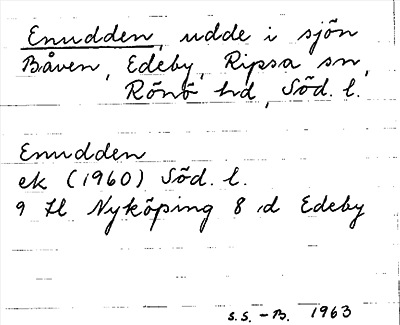 Enudden, udde i sjön
Båven, Edeby, Ripsa sn,
Rönö hd, Söd. l.
Enudden
ek (1960) Söd. l.
9 H Nyköping 8 d Edeby
S.S. - B. 1963